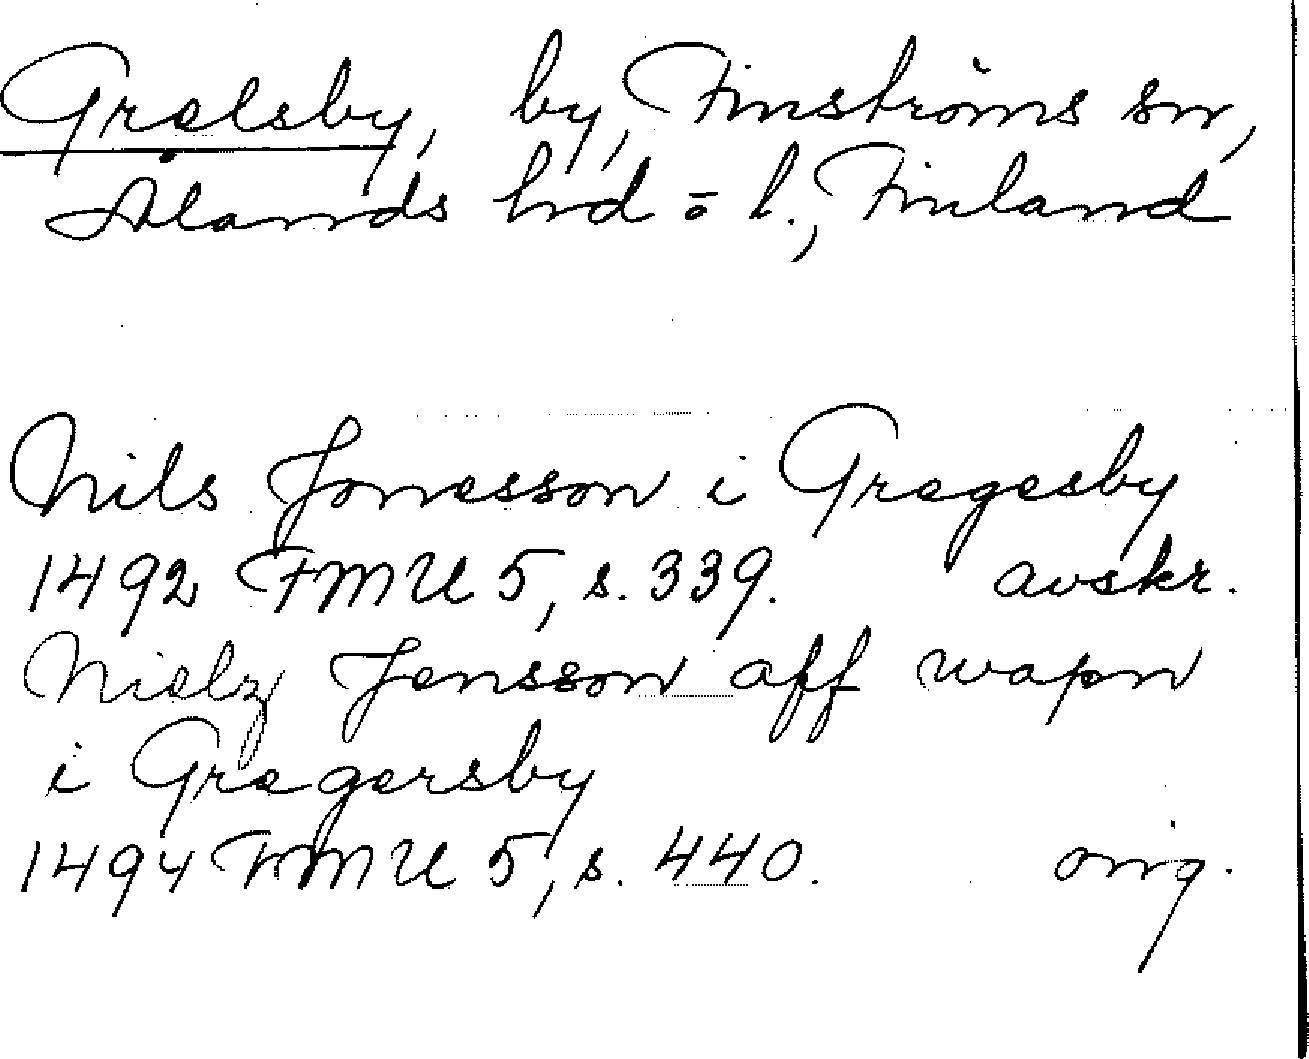 Grelsby, by, Finströms sn,
Ålands hd o l., Finland
Nils Jonesson i Gregesby
1492 FMU 5, s. 339. avskr.
Nielz Jensson aff wapn
i Gregersby
1494 FMU 5, s. 440. orig.